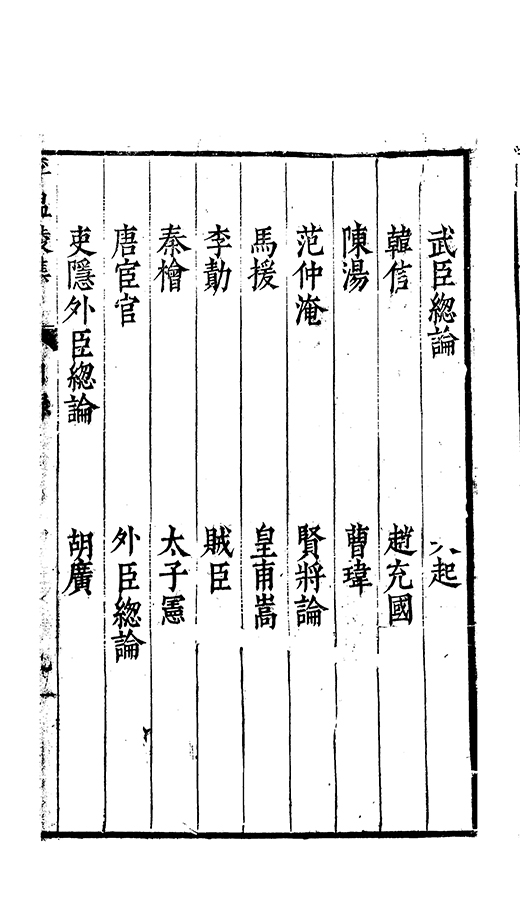 武臣緫論　起
韓信　趙充國
陳湯　曹瑋
范仲淹　賢將論
馬援　皇甫嵩
李勣　賊臣
秦檜　太子憲
唐宦官　外臣緫論
吏隱外臣緫論　胡廣